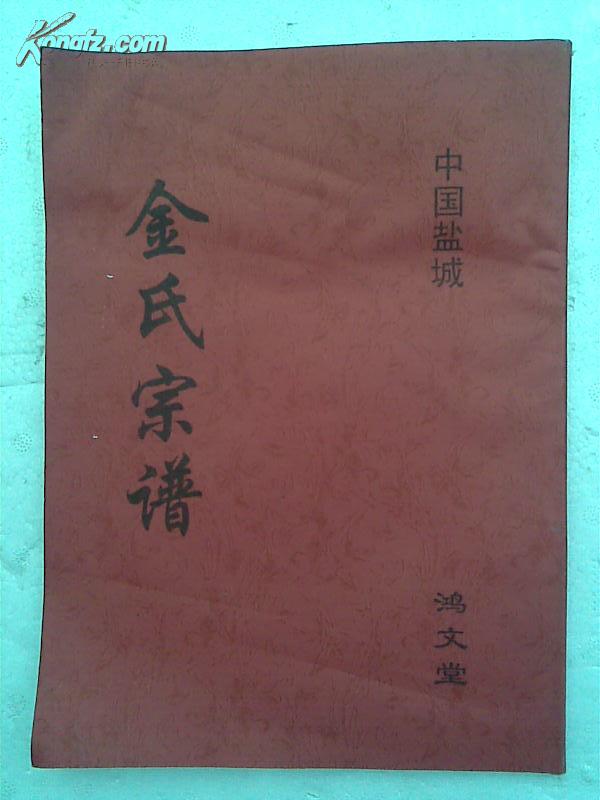 Kongfz.com
中国盐城
金氏宗谱
鸿文堂